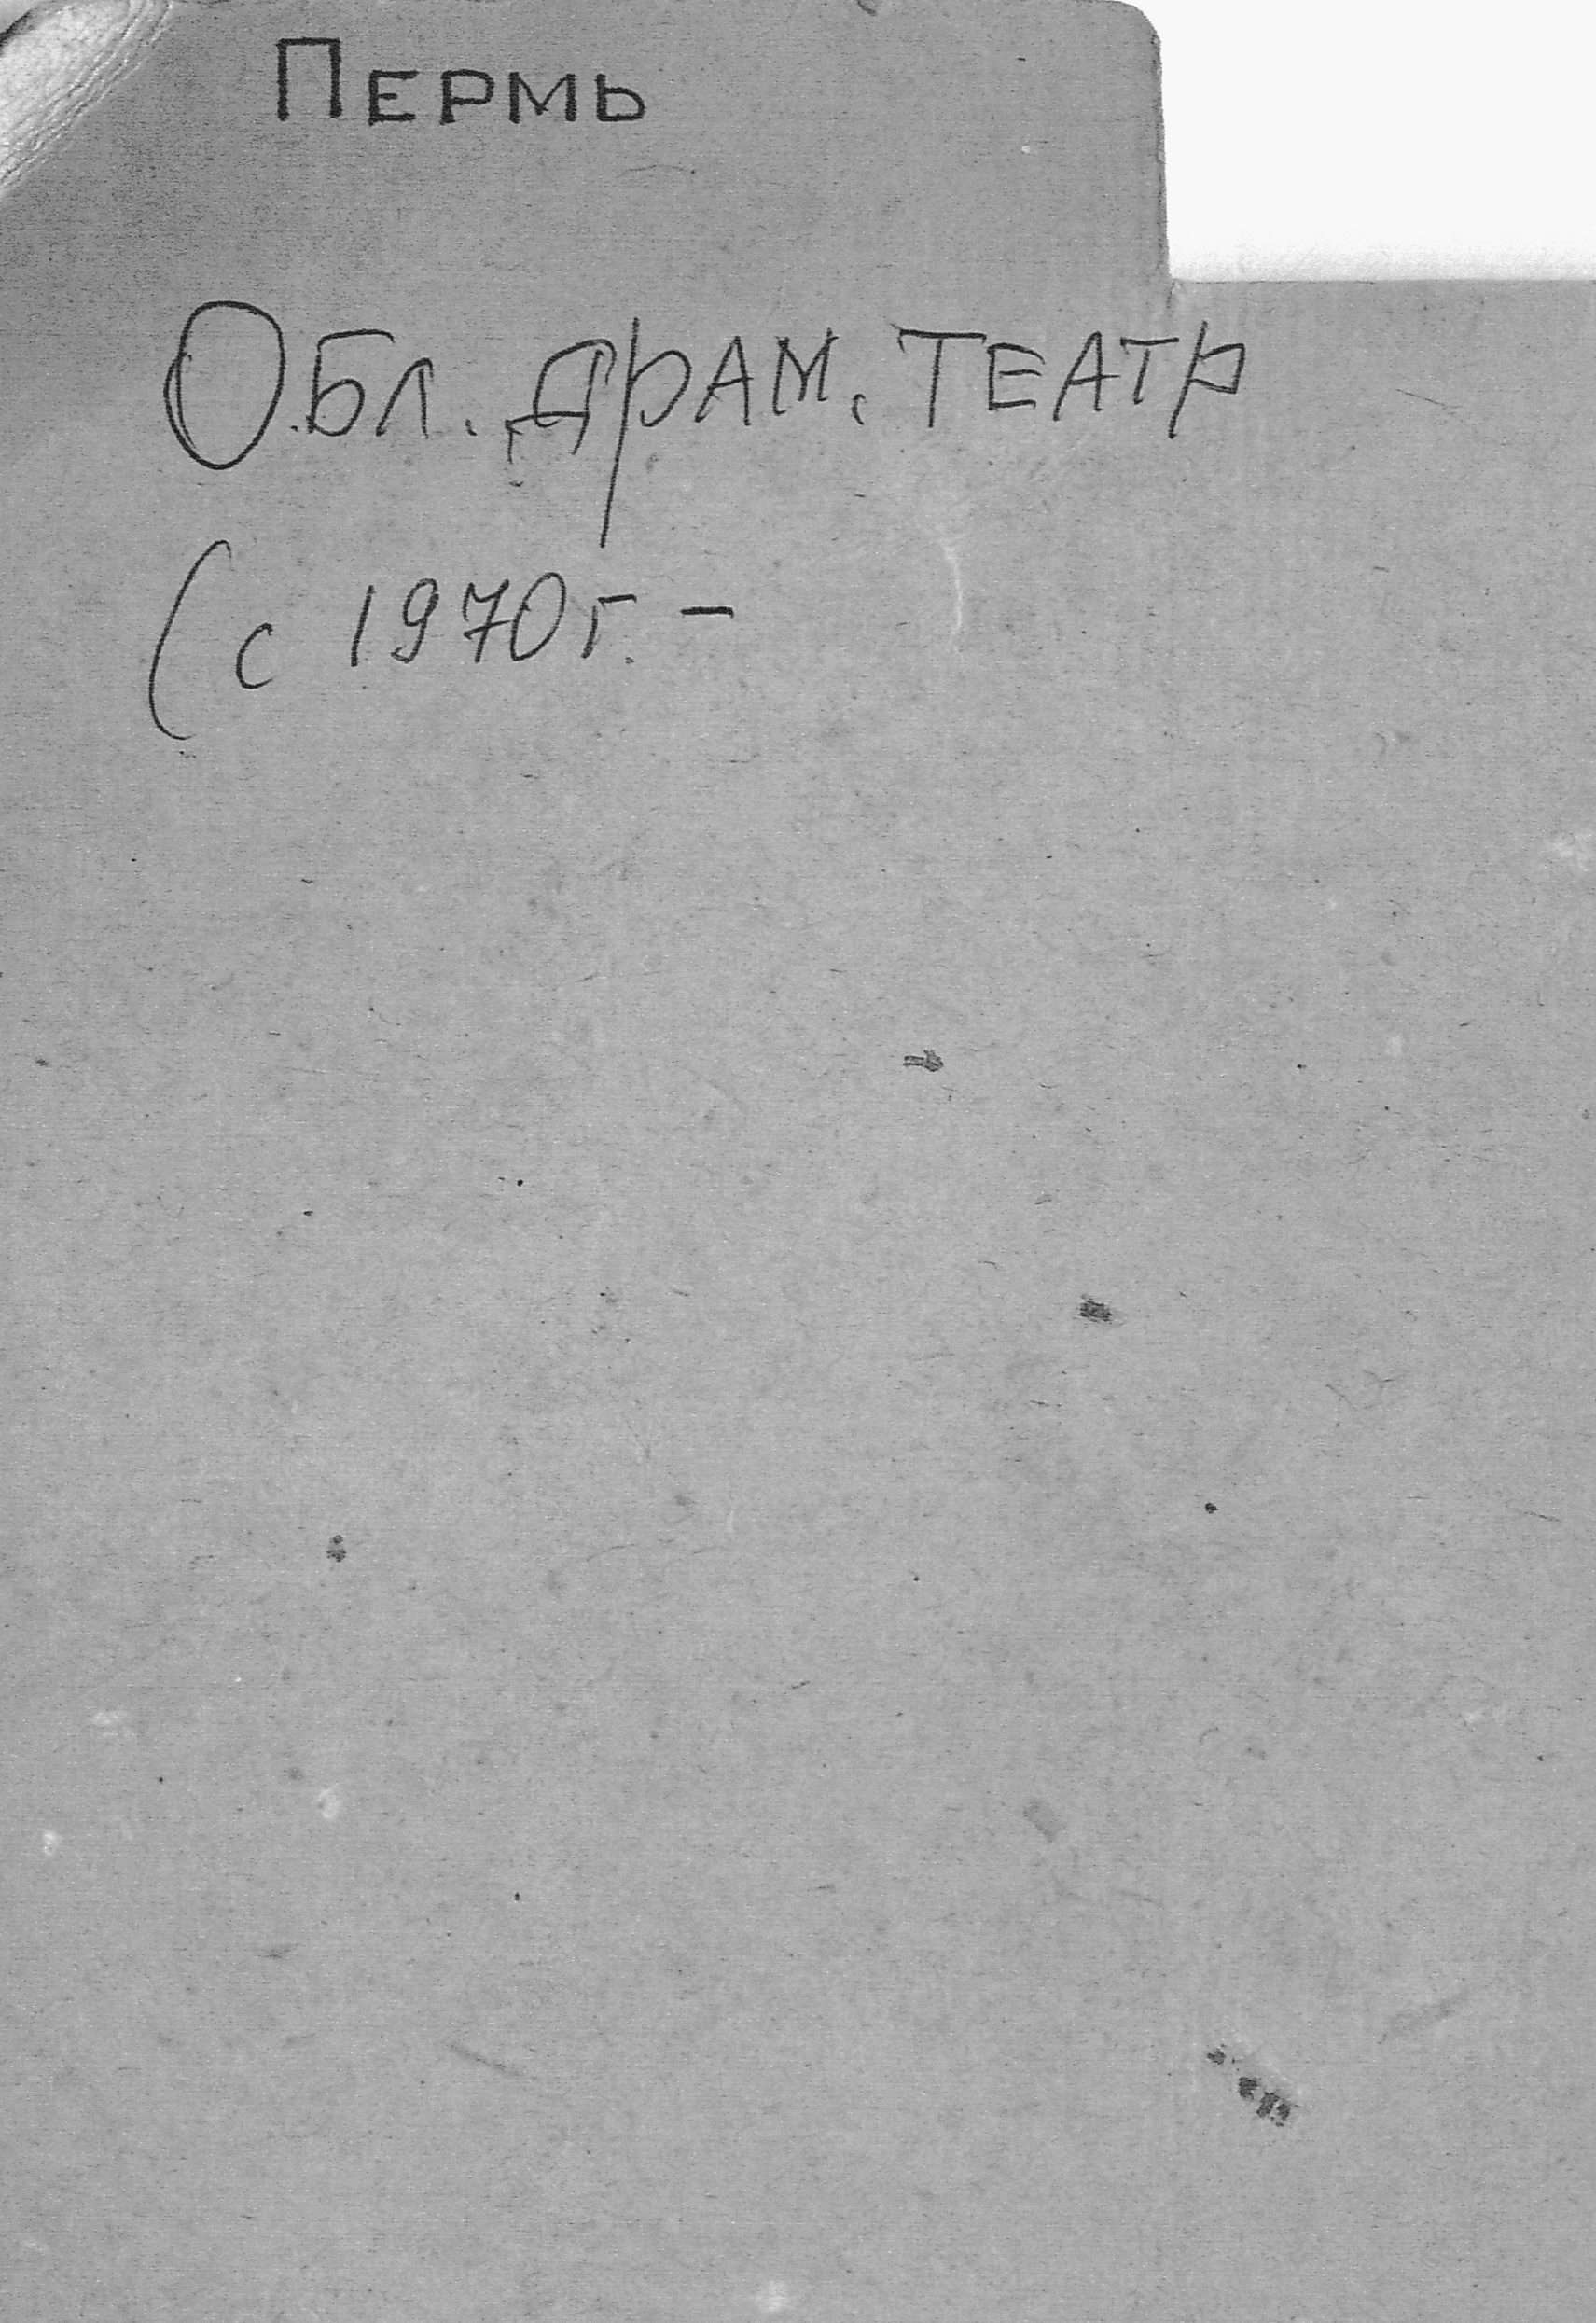 Пермь
Обл. драм. театр
(с 1970г. –